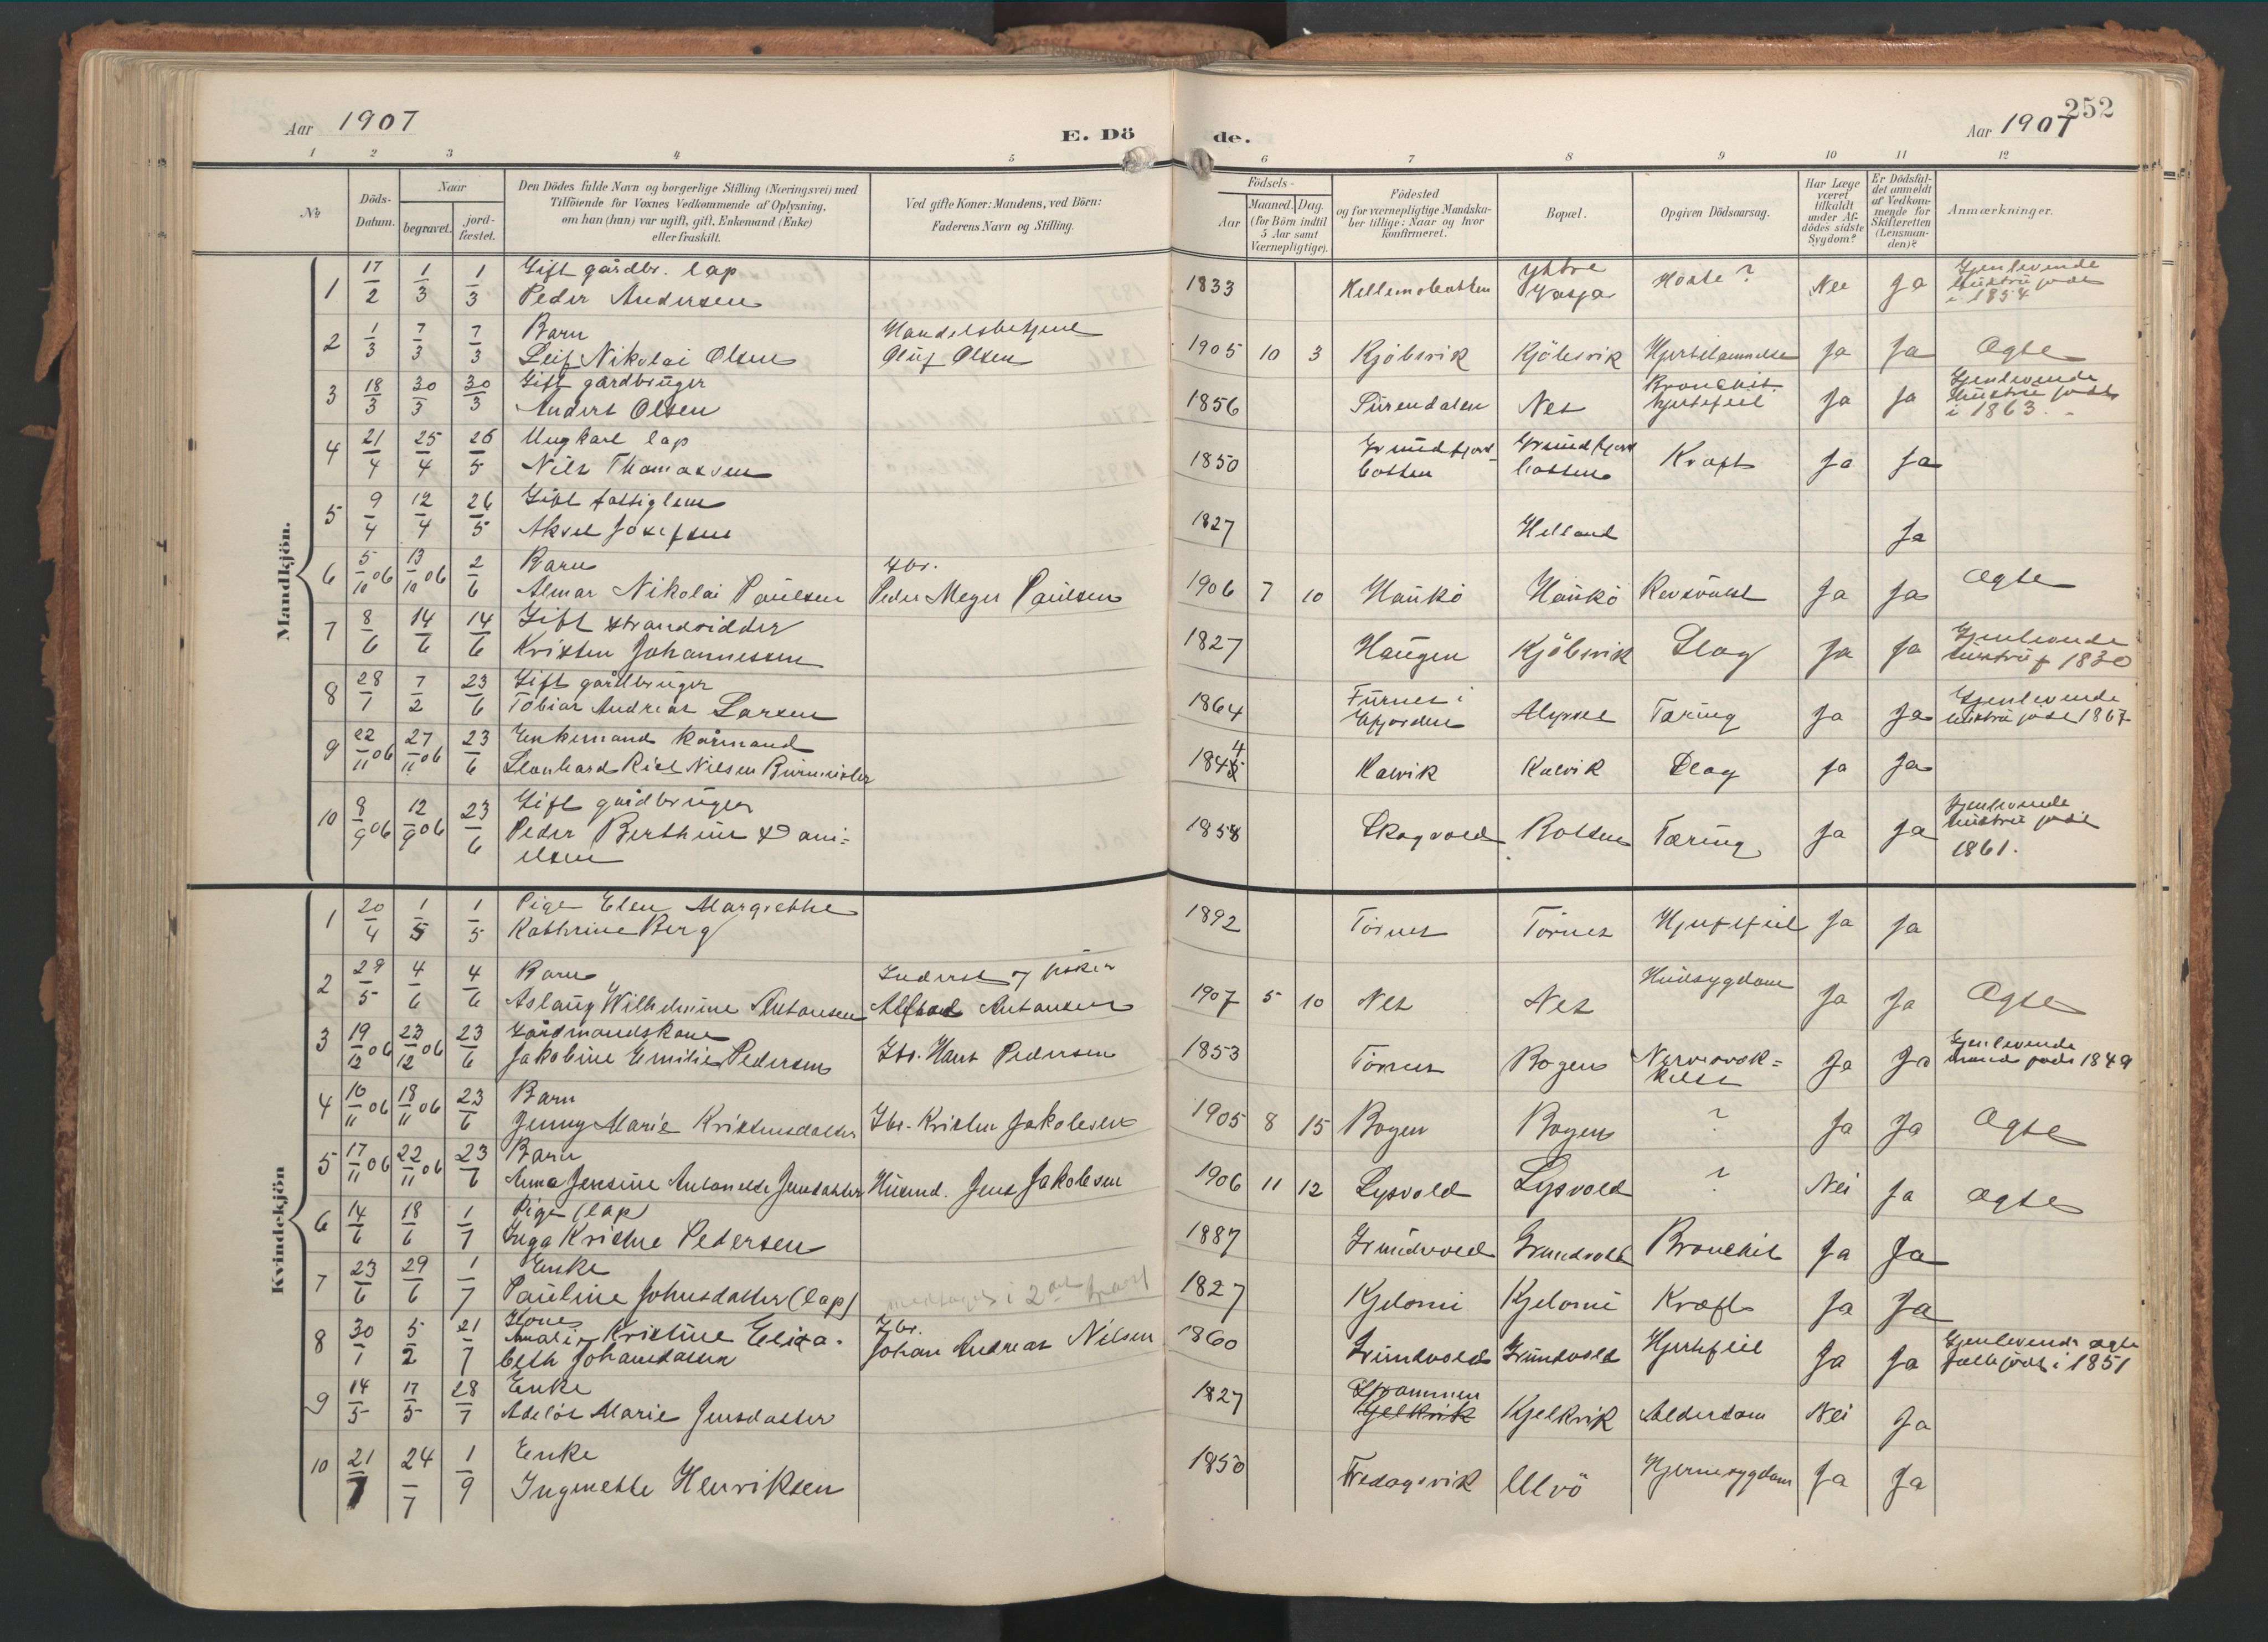 252
Aar 1907
E. Dö de.
Aar 1907
1 2 3 4 5 6 7 8 9 10 11 12
No
Döds-Datum.
Naar
begravet.
jord-fæstet.
Den Dödes fulde Navn og borgerlige Stilling (Næringsvei) med
Tilföiende for Voxnes Vedkommende af Oplysning,
om han (hun) var ugift, gift, Enkemand (Enke)
eller fraskilt.
Ved gifte Koner: Mandens, ved Börn:
Faderens Navn og Stilling.
Födsels-
Aar
Maaned. Dag.
(for Börn indtil
5 Aar samt
Værnepligtige).
Födested
og for værnepligtige Mandska-
ber tillige: Naar og hvor
konfirmeret.
Bopæl.
Opgiven Dödsaarsag.
Har Læge
været
tilkaldt
under Af-
dödes sidste
Sygdom?
Er Dödsfal-
det anmeldt
af Vedkom-
mende for
Skifteretten
(Lensman-
den)?
Anmærkninger.
Mandkjön.
1 17/2 1/3 1/3 Gift gårdbr. lap
Peder Andersen 1833 Hellemobotten Yttre Hoste? Nei Ja Gjenlevende
Hustru født
i 1854
2 1/3 7/3 7/3 Barn
Leif Nikolai Olsen Handelsbetjent
Oluf Olsen 1905 10 3 Kjöbsvik Kjöbsvik Hjertelammelse Ja Ja Ægte
3 18/3 30/3 30/3 Gift gårdbruger
Anders Olsen 1856 Surendalen Nes Bronchit
hjertefeil Ja Ja Gjenlevende
Hustru født
i 1863.
4 21/4 25/4 26/5 Ungkarl lap
Nils Thomassen 1850 Grundfjord-
botten Grundfjord
botten Kræft Ja Ja
5 9/4 12/4 26/5 Gift fattiglem
Aksel Josefsen 1827 Helland Ja
6 5/10 06 13/10 06 2/6 Barn
Almar Nikolai Paulsen Gbr.
Peder Meyer Paulsen 1906 7 10 Haukö Haukö Ja Ja Ægte
7 8/6 14/6 14/6 Gift strandsidder
Kristen Johannessen 1827 Haugen Kjöbsvik Slag Ja Ja Gjenlevende
hustru f 1830
8 28/1 7/2 23/6 Gift gårdbruger
Tobias Andreas Larsen 1864 Furnes i
Efjorden Tæring Ja Ja Gjenlevende
hustru født 1867
9 22/11 06 27/11 06 23/6 Enkemand kårmand
Leonhard Rist Nilsen Burmeister 1844 Kalvik Kalvik Slag Ja Ja
10 8/9 06 12/9 06 23/6 Gift gårdbruger
Peder Berthéus Dani-
elsen 1858 Skogvold Botten Tæring Ja Ja Gjenlevende
hustru født
1861.
Kvindekjön
1 20/4 1/5 1/5 Pige Elen Margrethe
Kathrine Berg 1892 Törnes Törnes Hjertefeil Ja Ja
2 29/5 4/6 4/6 Barn
Aslaug Wilhelmine Antonsen Inderst og fisker
Alfred Antonsen 1907 5 10 Nes Nes Hudsygdom Ja Ja Ægte
3 19/12 06 23/12 06 23/6 Gårdmandskone
Jakobine Emilie Pedersen Gbr. Hans Pedersen 1853 Tömmer Bogen Nervesvæk=
kelse Ja Ja Gjenlevende
mand født 1849
4 10/11 06 18/11 06 23/6 Barn
Jenny Marie Kristensdatter Gbr. Kristen Jakobsen 1905 8 15 Bogen Bogen ? Ja Ja Ægte
5 17/11 06 22/11 06 23/6 Barn
Anna Jensine Antonette Jensdatter Husmd. Jens Jakobsen 1906 11 12 Lysvold Lysvold ? Nei Ja Ægte
6 14/6 18/6 1/7 Pige (lap)
Inga Kristine Pedersen 1887 Grundvold Grundvold Bronchit Ja Ja
7 23/6 29/6 1/7 Enke
Pauline Johnsdatter (lap) i 2det 1827 Kjelomi Kjelomi Kræft Ja Ja
8 30/1 5/2 21/7 Kone
Amalie Kristine Elisa-
beth Johansdatter Gbr.
Johan Andreas Nilsen 1860 Grundvold Grundvold Hjertefeil Ja Ja Gjenlevende ægte
fælle födt i 1851
9 14/5 17/5 28/7 Enke
Adelös Marie Jensdatter 1827 Strommen
Kjelkvik Kjelkvik Alderdom Nei Ja
10 21/7 24/7 1/9 Enke
Ingmette Henriksen 1850 Fredagsvik Ulvö Hjernesygdom Ja Ja